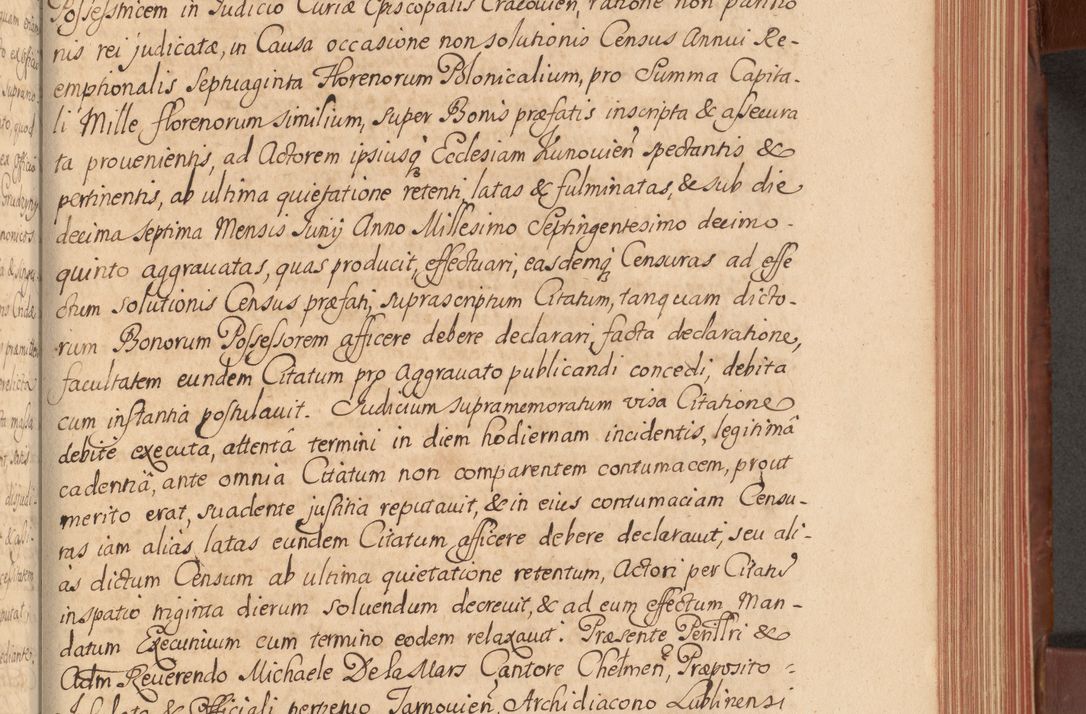 Possessricem in Iudicio Curiæ Episcopalis Cracovien, ratione non paritio
nis rei judicatæ, in Causa occasione non solutionis Census Annui Re-
emptionalis Septuaginta Florenorum Polonicalium, pro Summa Capita-
li Mille florenorum similium, super Bonis præfatis inscripta & assecura
ta prouenientis, ad Actorem ipsiusq Ecclesiam Kunouien spectantis &
pertinentis, ab ultima quietatione retenti, latas & fulminatas, & sub die
decima septima Mensis Iunij Anno Millesimo Septingentesimo decimo-
quinto aggrauatas, quas producit, effectuari, easdemq Censuras ad effe
ctum solutionis Census præfati, suprascriptum Citatum, tanquam dicto-
rum Bonorum Possessorem afficere debere declarari, facta declaratione,
facultatem eundem Citatum pro Aggrauato publicandi concedi, debita
cum instantia postulauit. Iudicium supramemoratum visa Citatione
debite executa, attentâ termini in diem hodiernam incidentis, legitimâ
cadentiâ, ante omnia Citatum non comparentem contumacem, prout
merito erat, suadente justitia reputauit, & in eius contumaciam Censu-
ras iam aliàs latas eundem Citatum afficere debere declarauit, seu ali-
às dictum Censum ab ultima quietatione retentum, Actori per Citatũ
in spatio triginta dierum soluendum decreuit, & ad eum effectum Man-
datum Execuniuum cum termino eodem relaxauit. Præsente Perillri &
Adm Reuerendo Michaele De la Mars Cantore Chelmen, Præposito
& Officiali perpetuo Tarnouien, Archidiacono Lublinensi